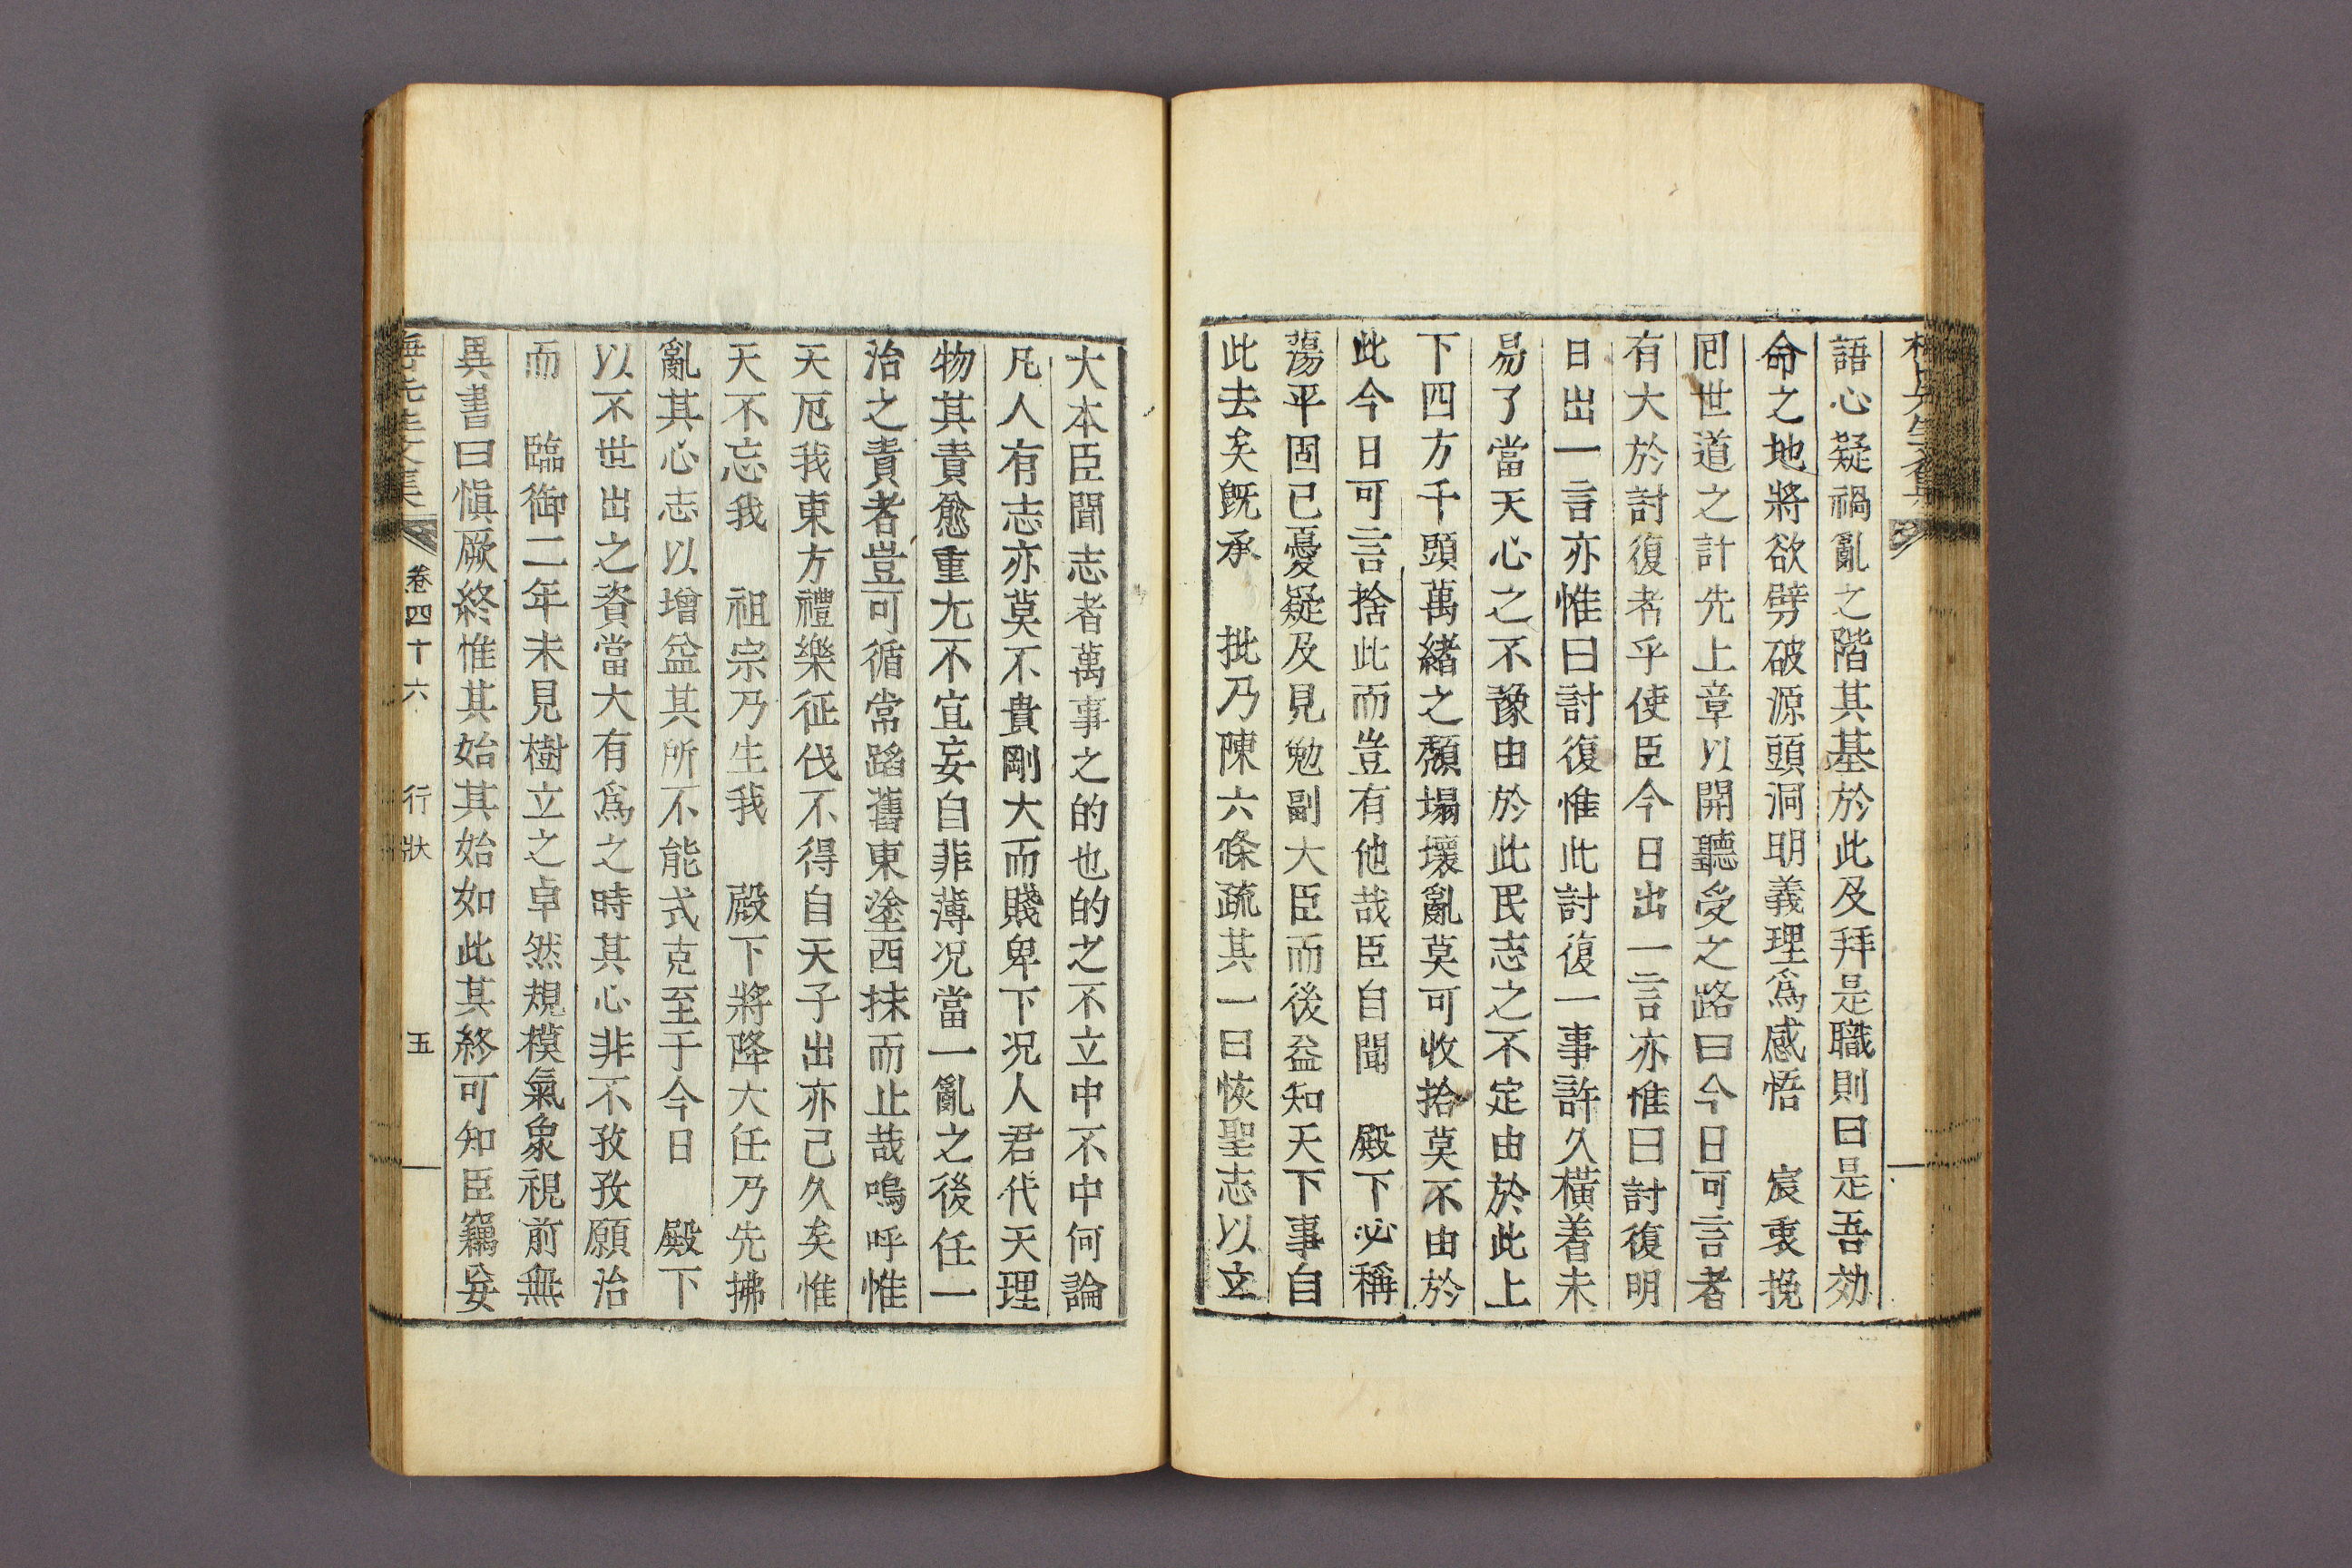 語心疑禍亂之階其基於此及拜是職則曰是吾効
命之地將欲劈破源頭洞明義理爲感悟　宸衷挽
囘世道之計先上章以開聽受之路曰今日可言者
有大於討復者乎使臣今日出一言亦惟曰討復明
日出一言亦惟曰討復惟此討復一事許久橫着未
易了當天心之不豫由於此民志之不定由於此上
下四方千頭萬緖之頹塌壞亂莫可收拾莫不由於
此今日可言捨此而豈有他哉臣自聞　殿下必稱
蕩平固已憂疑及見勉副大臣而後益知天下事自
此去矣旣承　批乃陳六條疏其一曰恢聖志以立
大本臣聞志者萬事之的也的之不立中不中何論
凡人有志亦莫不貴剛大而賤卑下况人君代天理
物其責愈重尢不宜妄自菲薄况當一亂之後任一
治之責者豈可循常蹈舊東塗西抹而止哉嗚呼惟
天厄我東方禮樂征伐不得自天子出亦已久矣惟
天不忘我　祖宗乃生我　殿下將降大任乃先拂
亂其心志以增益其所不能式克至于今日　殿下
以不世出之資當大有爲之時其心非不孜孜願治
而　臨御二年未見樹立之卓然規模氣象視前無
異書曰愼厥終惟其始其始如此其終可知臣竊妄
卷四十六　行狀　五